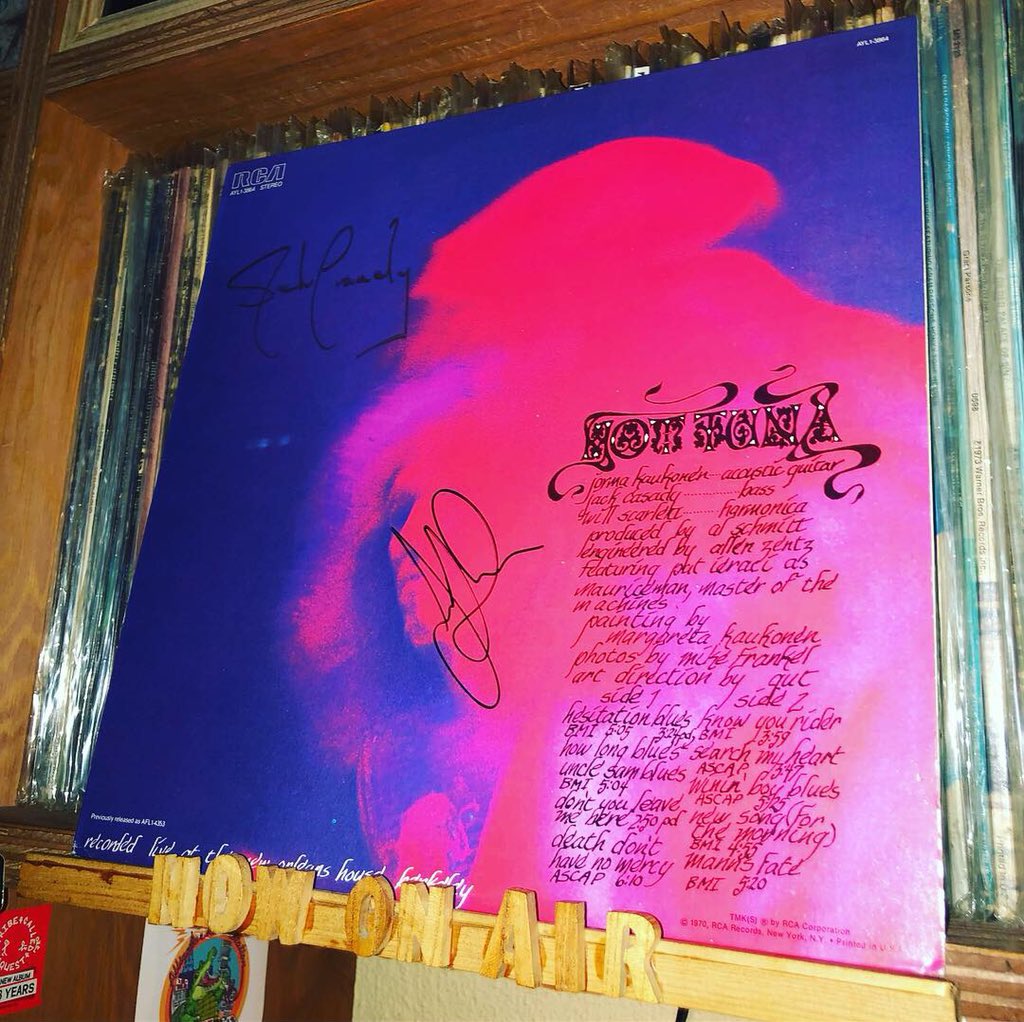 AYL1-3864
RCA
AYL1-3864 STEREO
Jack Casady
HOT TUNA
jorma kaukonen acoustic guitar
jack casady ............ bass
will scarlett ........ harmonica
produced by al schmitt
engineered by allen zentz
featuring pat ieraci as
mauriceman, master of the
machines.
painting by
margareta kaukonen
photos by mike frankel
art direction by gut
side 1 side 2
hesitation blues know you rider
BMI 5:05 3:24 pd, BMI 13:59
how long blues search my heart
uncle sam blues ASCAP
BMI 5:04 winin' boy blues
don't you leave ASCAP 5:25
me here 2:50 pd new song (for
death don't the morning)
have no mercy BMI 4:59
ASCAP 6:10 mann's fate
BMI 5:20
Previously released as AFL1-4353
recorded live at the new orleans house, berkeley
TMK(S) ® by RCA Corporation
© 1970, RCA Records, New York, N.Y. • Printed in U.S.A.
NOW ON AIR
TRIBE CALLED
QUEST
NEW ALBUM
YEARS
1973 Warner Bros. Records Inc.